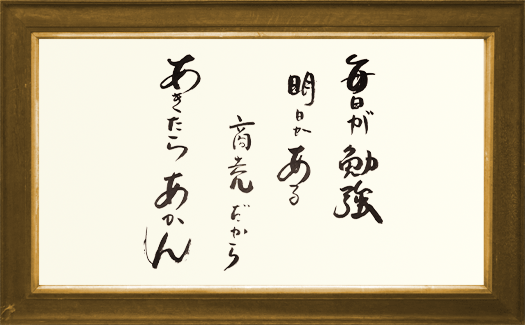 毎日が勉強
明日がある
商売だから
あきたらあかん